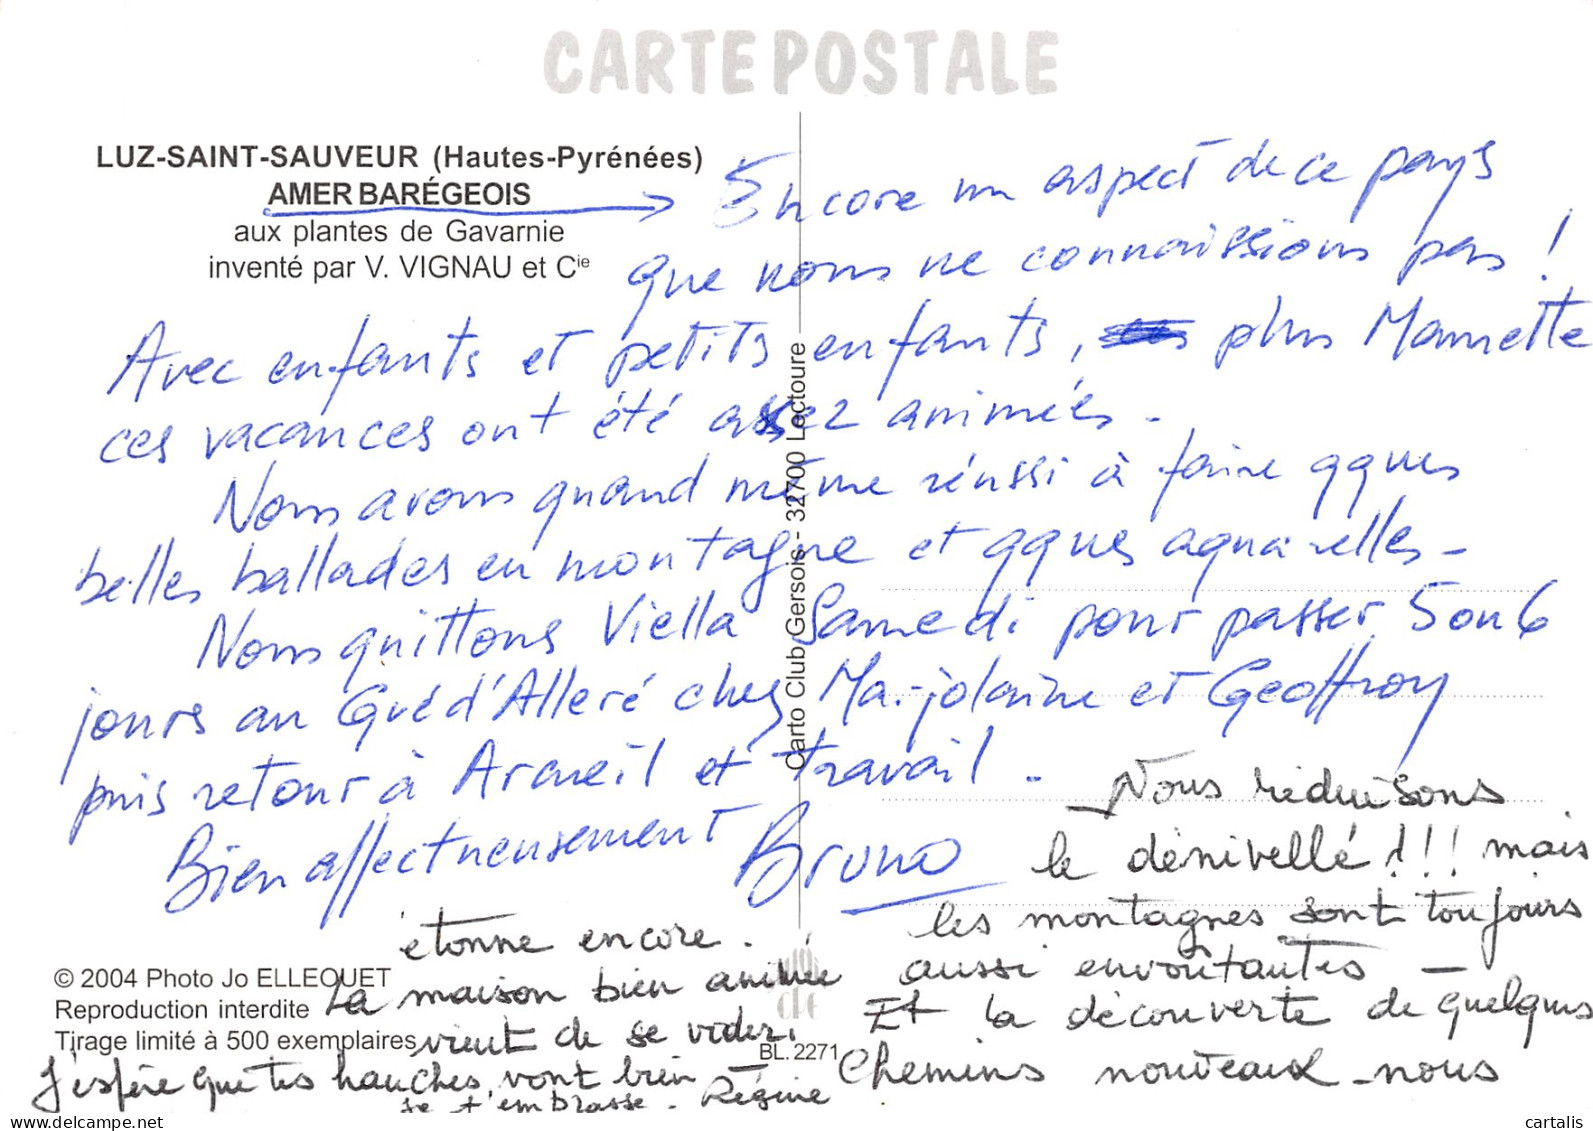 CARTE POSTALE
LUZ-SAINT-SAUVEUR (Hautes-Pyrénées)
AMER BARÉGEOIS
aux plantes de Gavarnie
inventé par V. VIGNAU et Cie
Encore un aspect de ce pays
que nous ne connaissions pas !
Avec enfants et petits enfants, plus Mamette
ces vacances ont été assez animées -
Nous avons quand même réussi à faire qques
belles ballades en montagne et qques aquarelles -
Nous quittons Viella Samedi pour passer 5 ou 6
jours au Gué d'Alleré chez Marjolaine et Geoffroy
puis retour à Arcueil et travail -
Bien affectueusement Bruno
Nous réduisons
le dénivellé !!! mais
les montagnes sont toujours
aussi envoûtantes -
Et la découverte de quelques
Chemins nouveaux nous
étonne encore.
La maison bien animée
vient de se vider.
J'espère que tes hanches vont bien -
Je t'embrasse - Régine
Carto Club Gersois - 32700 Lectoure
© 2004 Photo Jo ELLEQUET
Reproduction interdite
Tirage limité à 500 exemplaires
BL. 2271
www.delcampe.net
cartalis